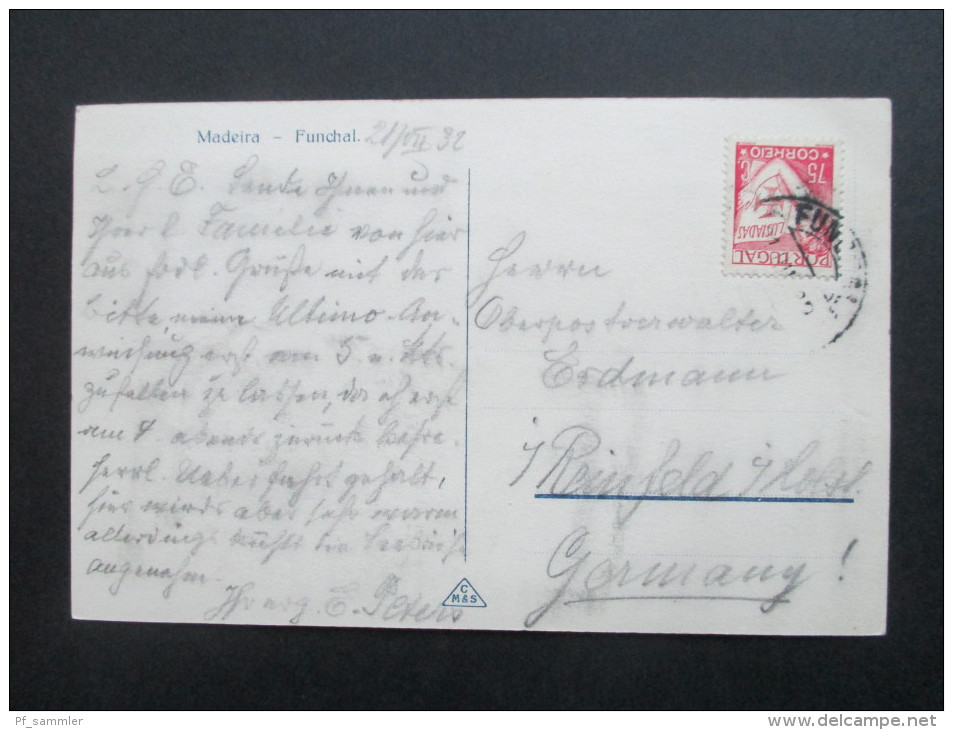 Madeira – Funchal. 21/VII 32
L. H. E. Sende Ihnen und
Ihrer l. Familie von hier
aus frdl. Grüße mit der
bitte, meine Ultimo-An-
weisung erst am 5. n. Mts.
zufallen zu lassen, da ich erst
am 4. abends zurück
herrl. Ueberfahrt gehabt,
hier wirds aber sehr warm
allerdings kühlt die
angenehm.
Ihr erg. E. Peters
C
M&S
75 C.
CORREIO
LUSIADAS
PORTUGAL
FUNCHAL
Herrn
Oberpostverwalter
Erdmann
i/ Reinfeld i/Holst.
Germany!
Pf_sammler
www.delcampe.net